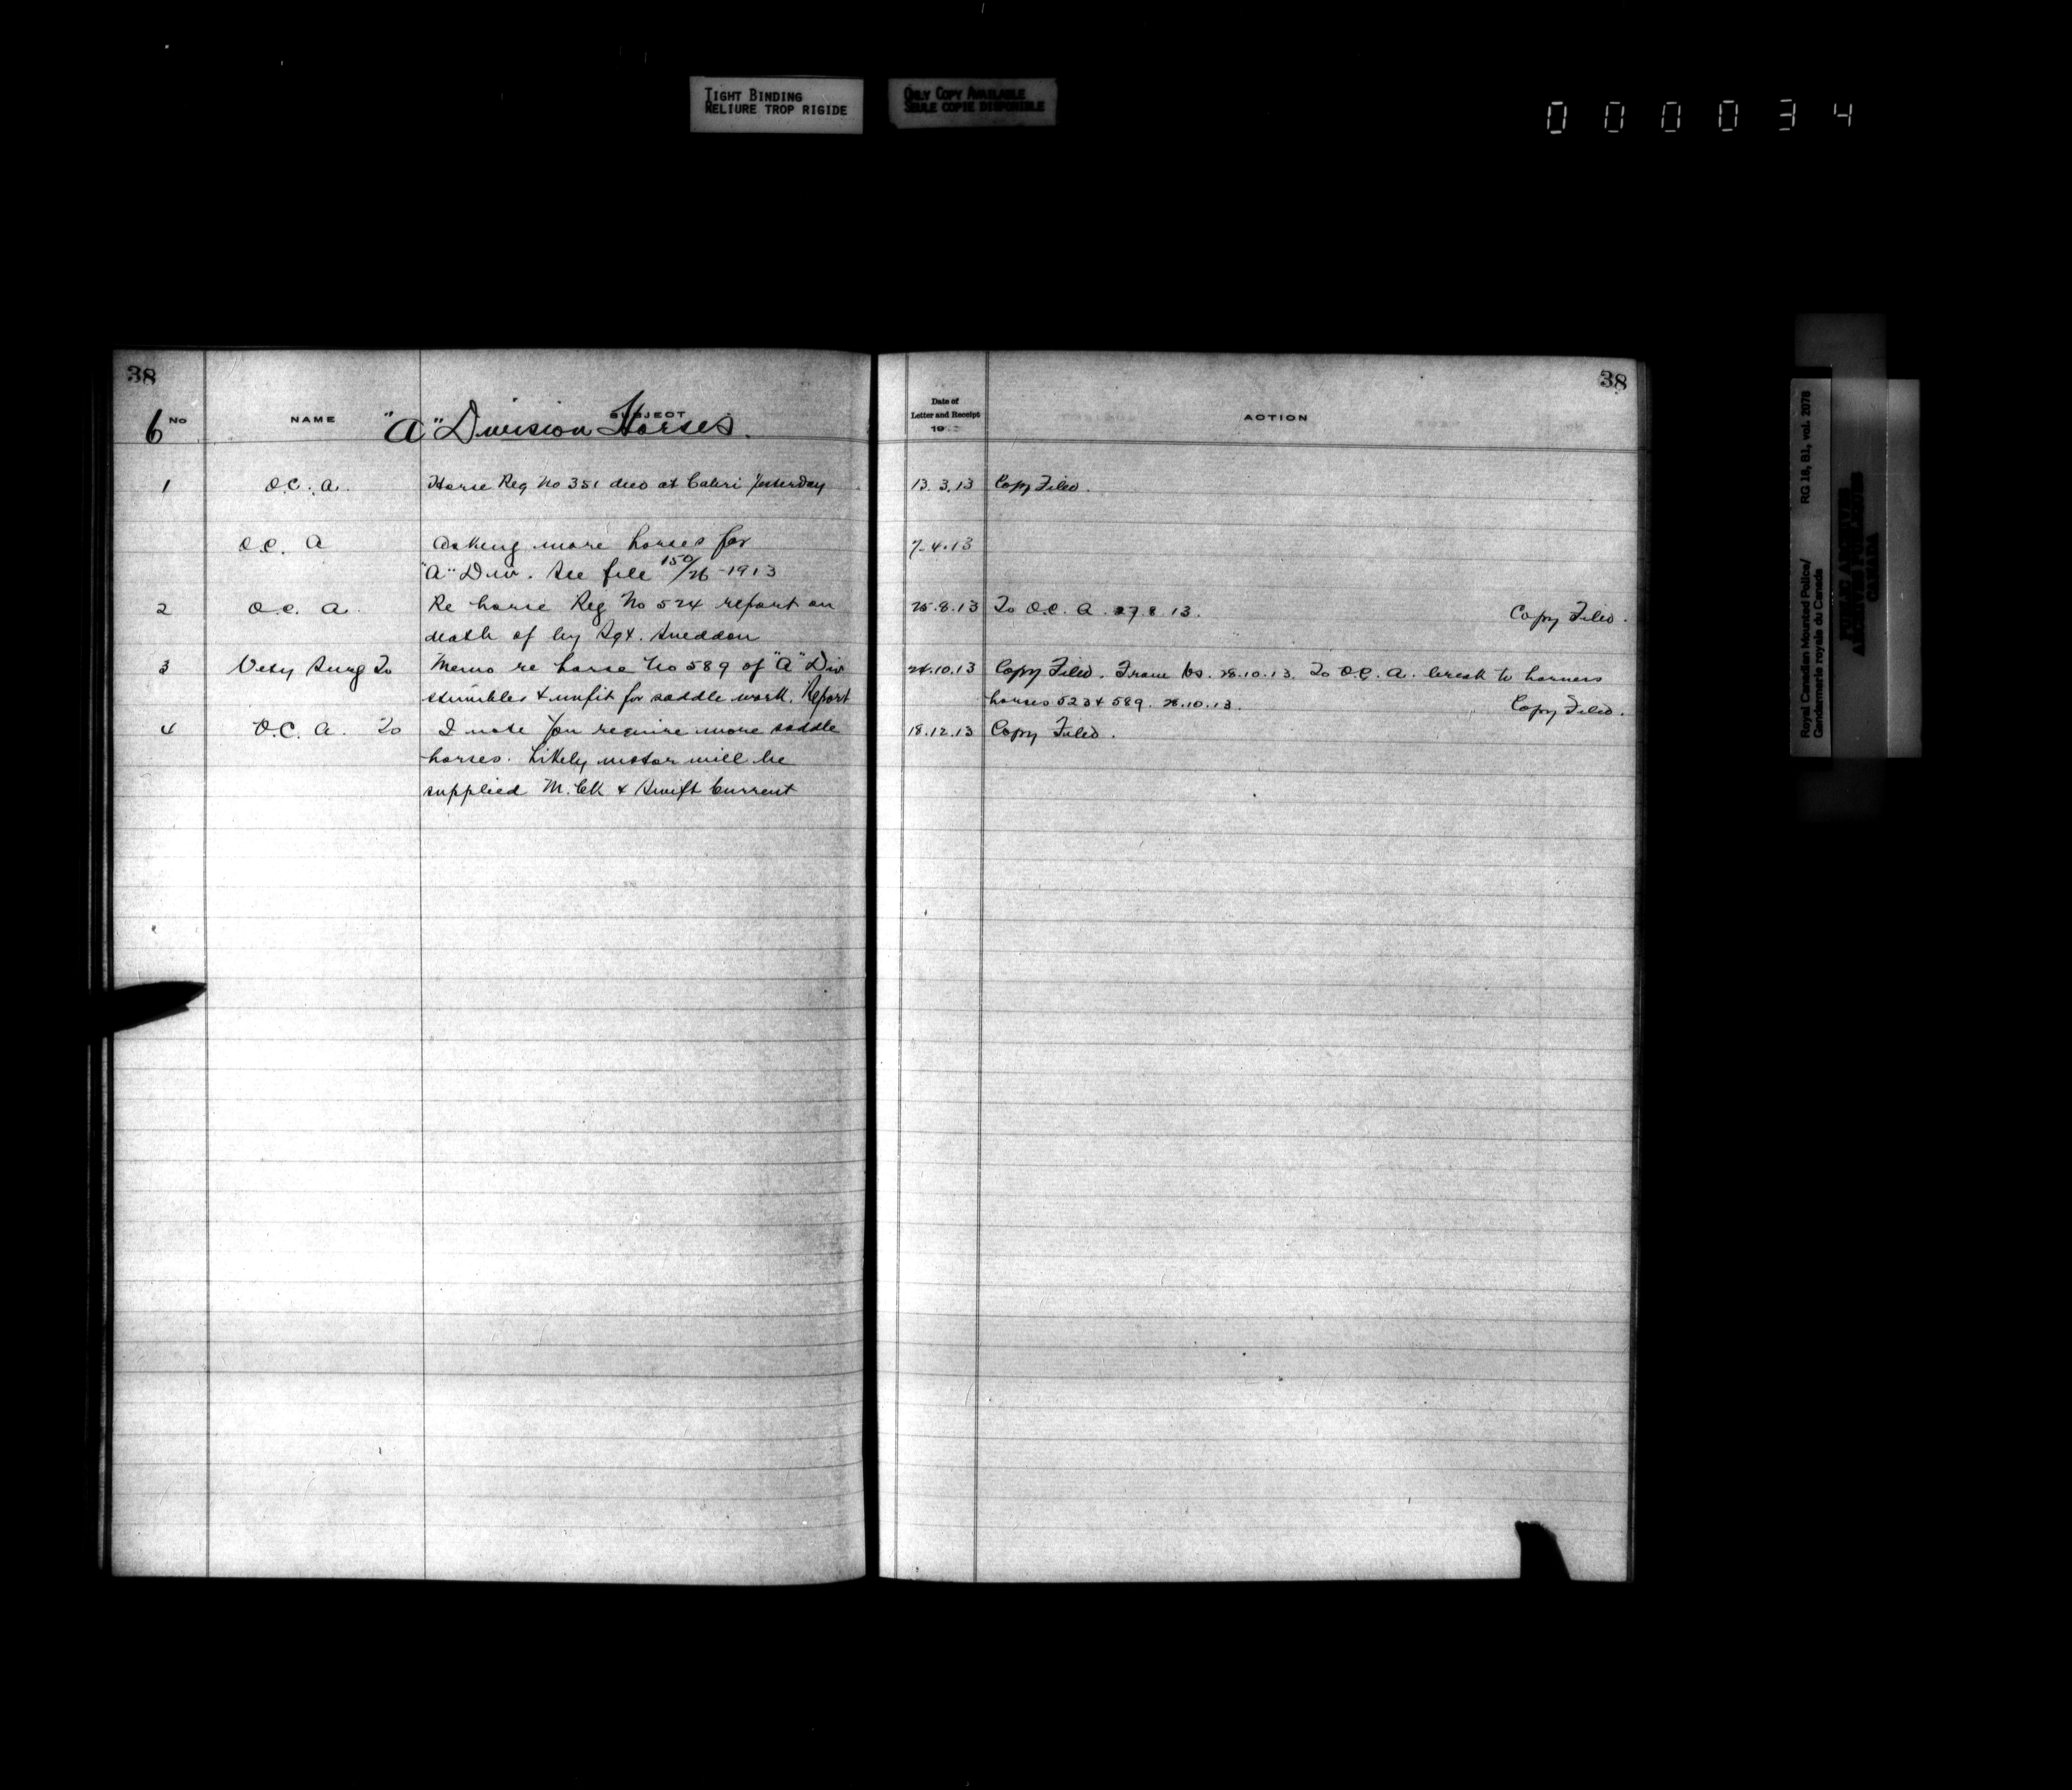 TIGHT BINDING
RELIURE TROP RIGIDE
ONLY COPY AVAILABLE
SEULE COPIE DISPONIBLE
000034
38
38
6 No NAME SUBJECT Date of Letter and Receipt 19 ACTION
"A" Division Horses.
1 O.C. A. Horse Reg No 351 died at Cabri Yesterday 13.3.13 Copy Filed.
O.C. A Asking more horses for 7.4.13
"A" Div. See file 150/26-1913
2 O.C. A. Re horse Reg No 524 report on 25.8.13 To O.C. A. 27.8.13. Copy Filed.
death of by Sgt. Sneddon
3 Vety Surg To Memo re horse No 589 of "A" Div 24.10.13 Copy Filed. From 28.10.13. To O.C. A. break to harness
stumbles & unfit for saddle work. Report horses 523 & 589. 28.10.13. Copy Filed.
4 O.C. A. To I note you require more saddle 18.12.13 Copy Filed.
horses. Likely motor will be
supplied M. Ck & Swift Current
Royal Canadian Mounted Police/ RG 18, B1, vol. 2078
Gendarmerie royale du Canada
PUBLIC ARCHIVES
ARCHIVES PUBLIQUES
CANADA